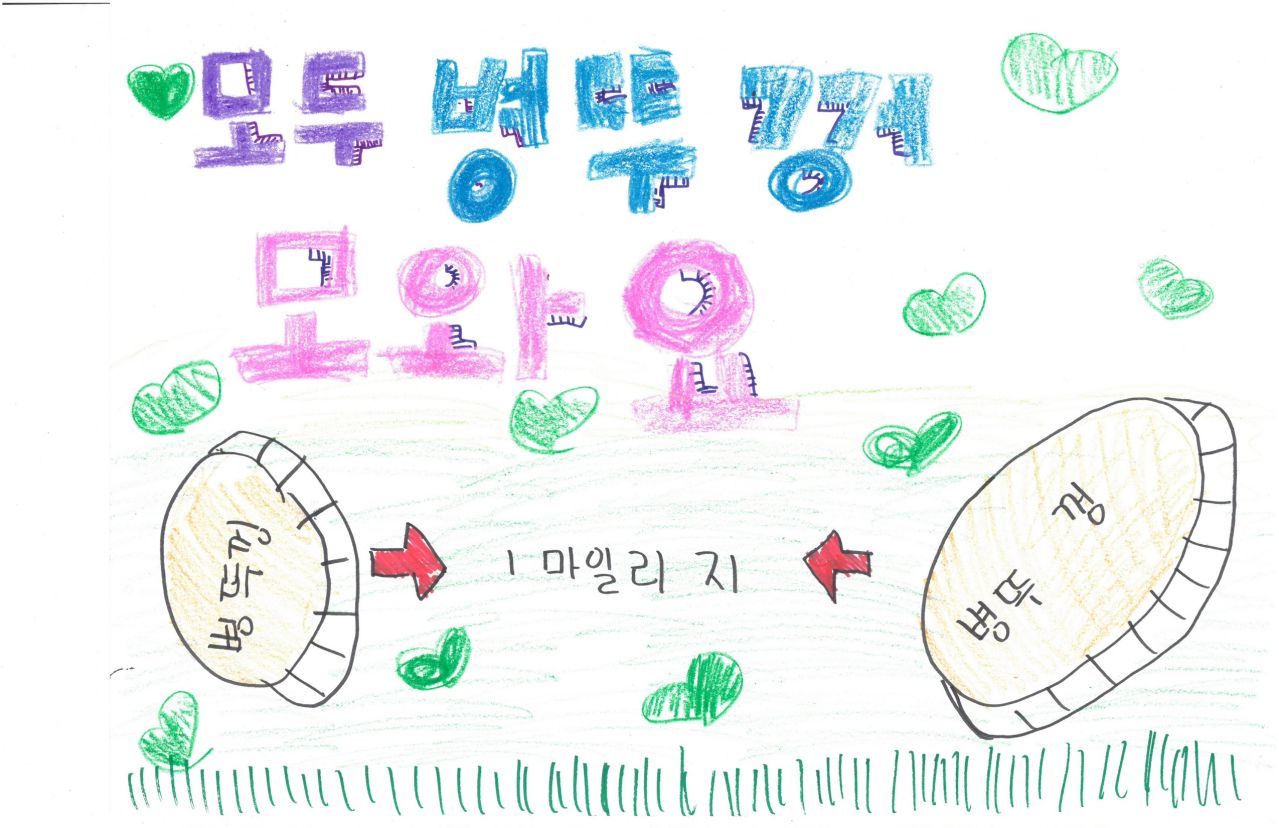 모두 병뚜껑
모아요
병뚜껑
1 마일리지
병뚜껑